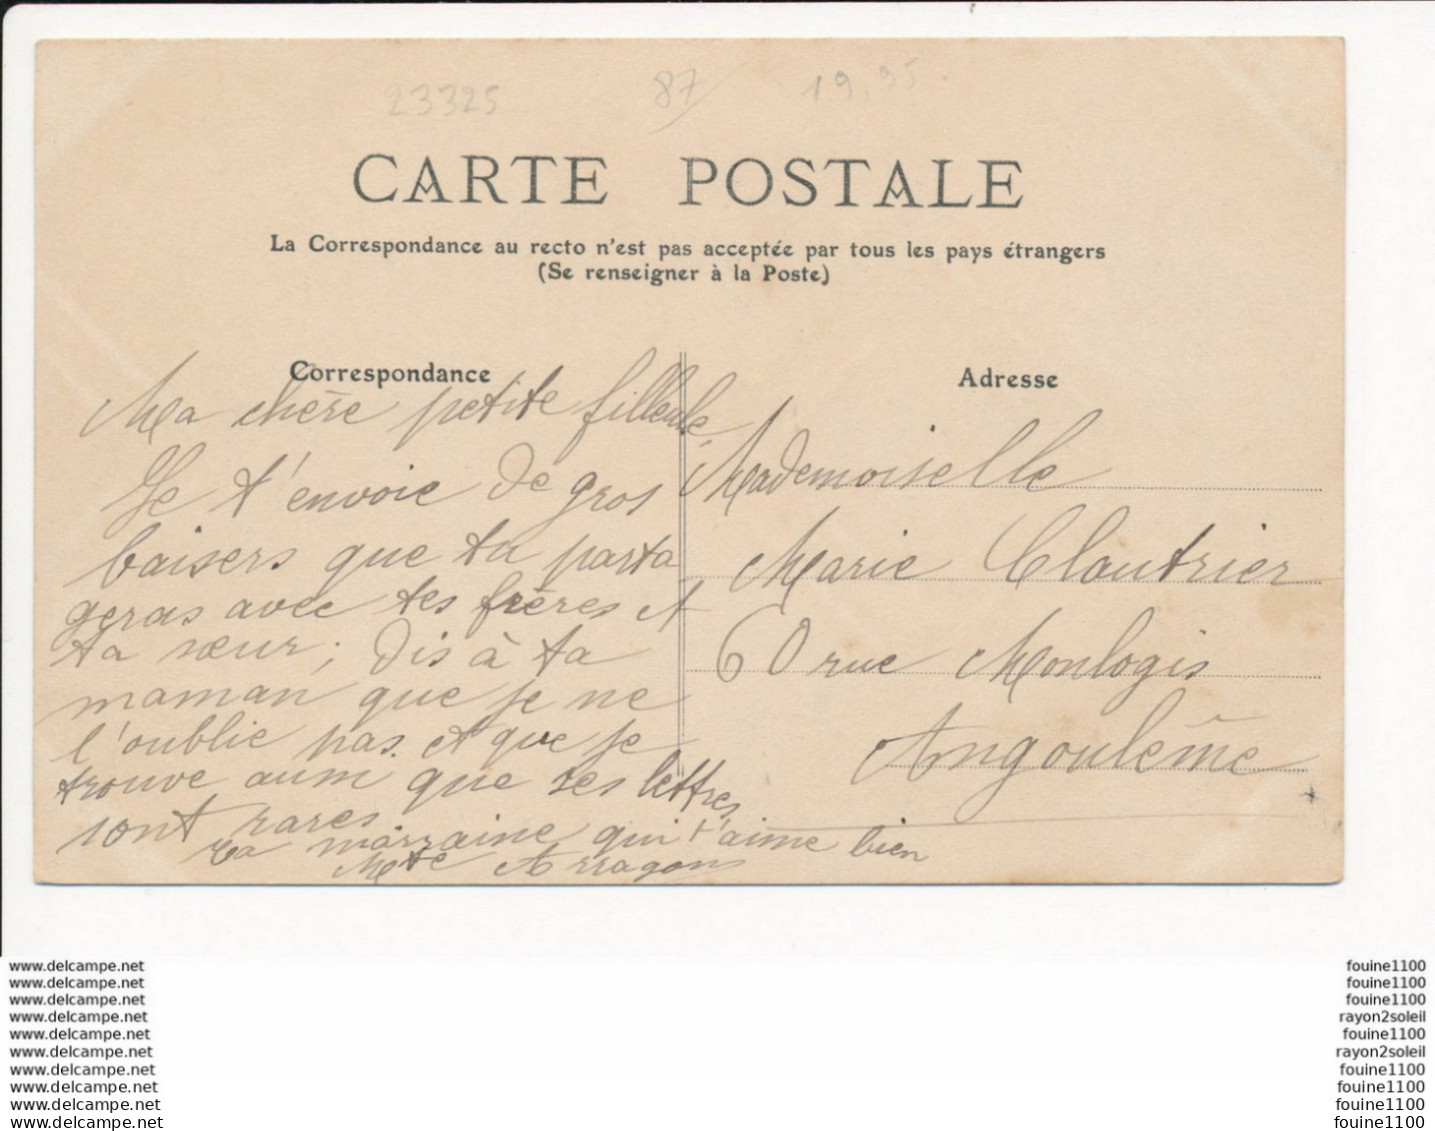 23325 87 19,95
CARTE POSTALE
La Correspondance au recto n'est pas acceptée par tous les pays étrangers
(Se renseigner à la Poste)
Correspondance
Ma chère petite filleule,
Je t'envoie de gros
baisers que tu parta
geras avec tes frères et
ta sœur; dis à ta
maman que je ne
l'oublie pas et que je
trouve aussi que ses lettres
sont rares.
Ta marraine qui t'aime bien
Mte Arragons
Adresse
Mademoiselle
Marie Cloutrier
60 rue Monlogis
Angoulême
www.delcampe.net
www.delcampe.net
www.delcampe.net
www.delcampe.net
www.delcampe.net
www.delcampe.net
www.delcampe.net
www.delcampe.net
www.delcampe.net
www.delcampe.net
fouine1100
fouine1100
fouine1100
rayon2soleil
fouine1100
rayon2soleil
fouine1100
fouine1100
fouine1100
fouine1100